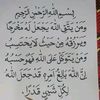 بِسْمِ اللَّهِ الرَّحْمَنِ الرَّحِيمِ
وَمَنْ يَتَّقِ اللَّهَ يَجْعَلْ لَهُ مَخْرَجًا
وَيَرْزُقْهُ مِنْ حَيْثُ لَا يَحْتَسِبُ
وَمَنْ يَتَوَكَّلْ عَلَى اللَّهِ فَهُوَ حَسْبُهُ
إِنَّ اللَّهَ بَالِغُ أَمْرِهِ قَدْ جَعَلَ اللَّهُ
لِكُلِّ شَيْءٍ قَدْرًا